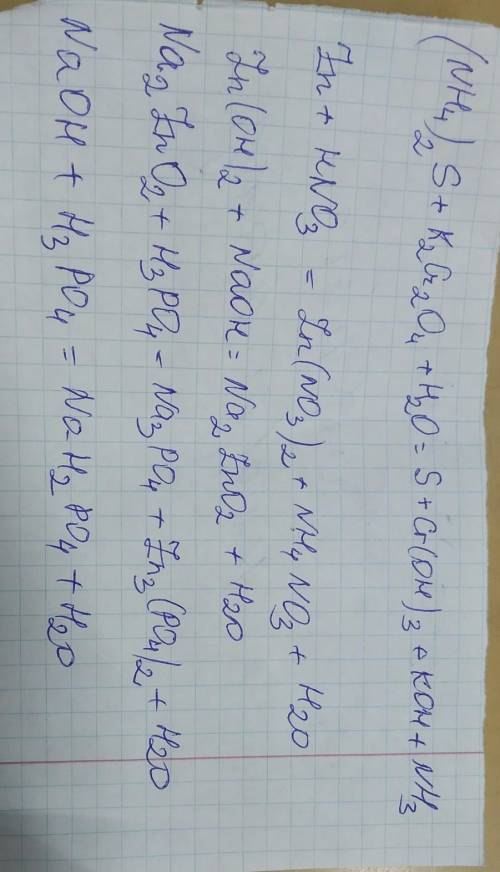 (NH₄)₂S + K₂Cr₂O₄ + H₂O = S + Cr(OH)₃ + KOH + NH₃
Zn + HNO₃ = Zn(NO₃)₂ + NH₄NO₃ + H₂O
Zn(OH)₂ + NaOH = Na₂ZnO₂ + H₂O
Na₂ZnO₂ + H₃PO₄ = Na₃PO₄ + Zn₃(PO₄)₂ + H₂O
NaOH + H₃PO₄ = NaH₂PO₄ + H₂O